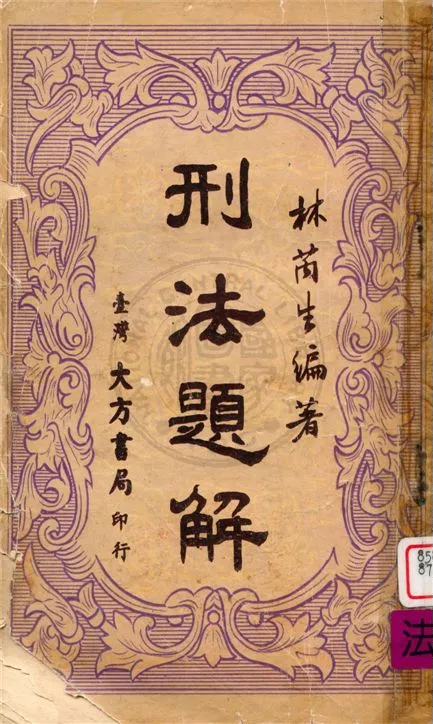 林芮生編著
刑法題解
臺灣 大方書局 印行
85
87
法